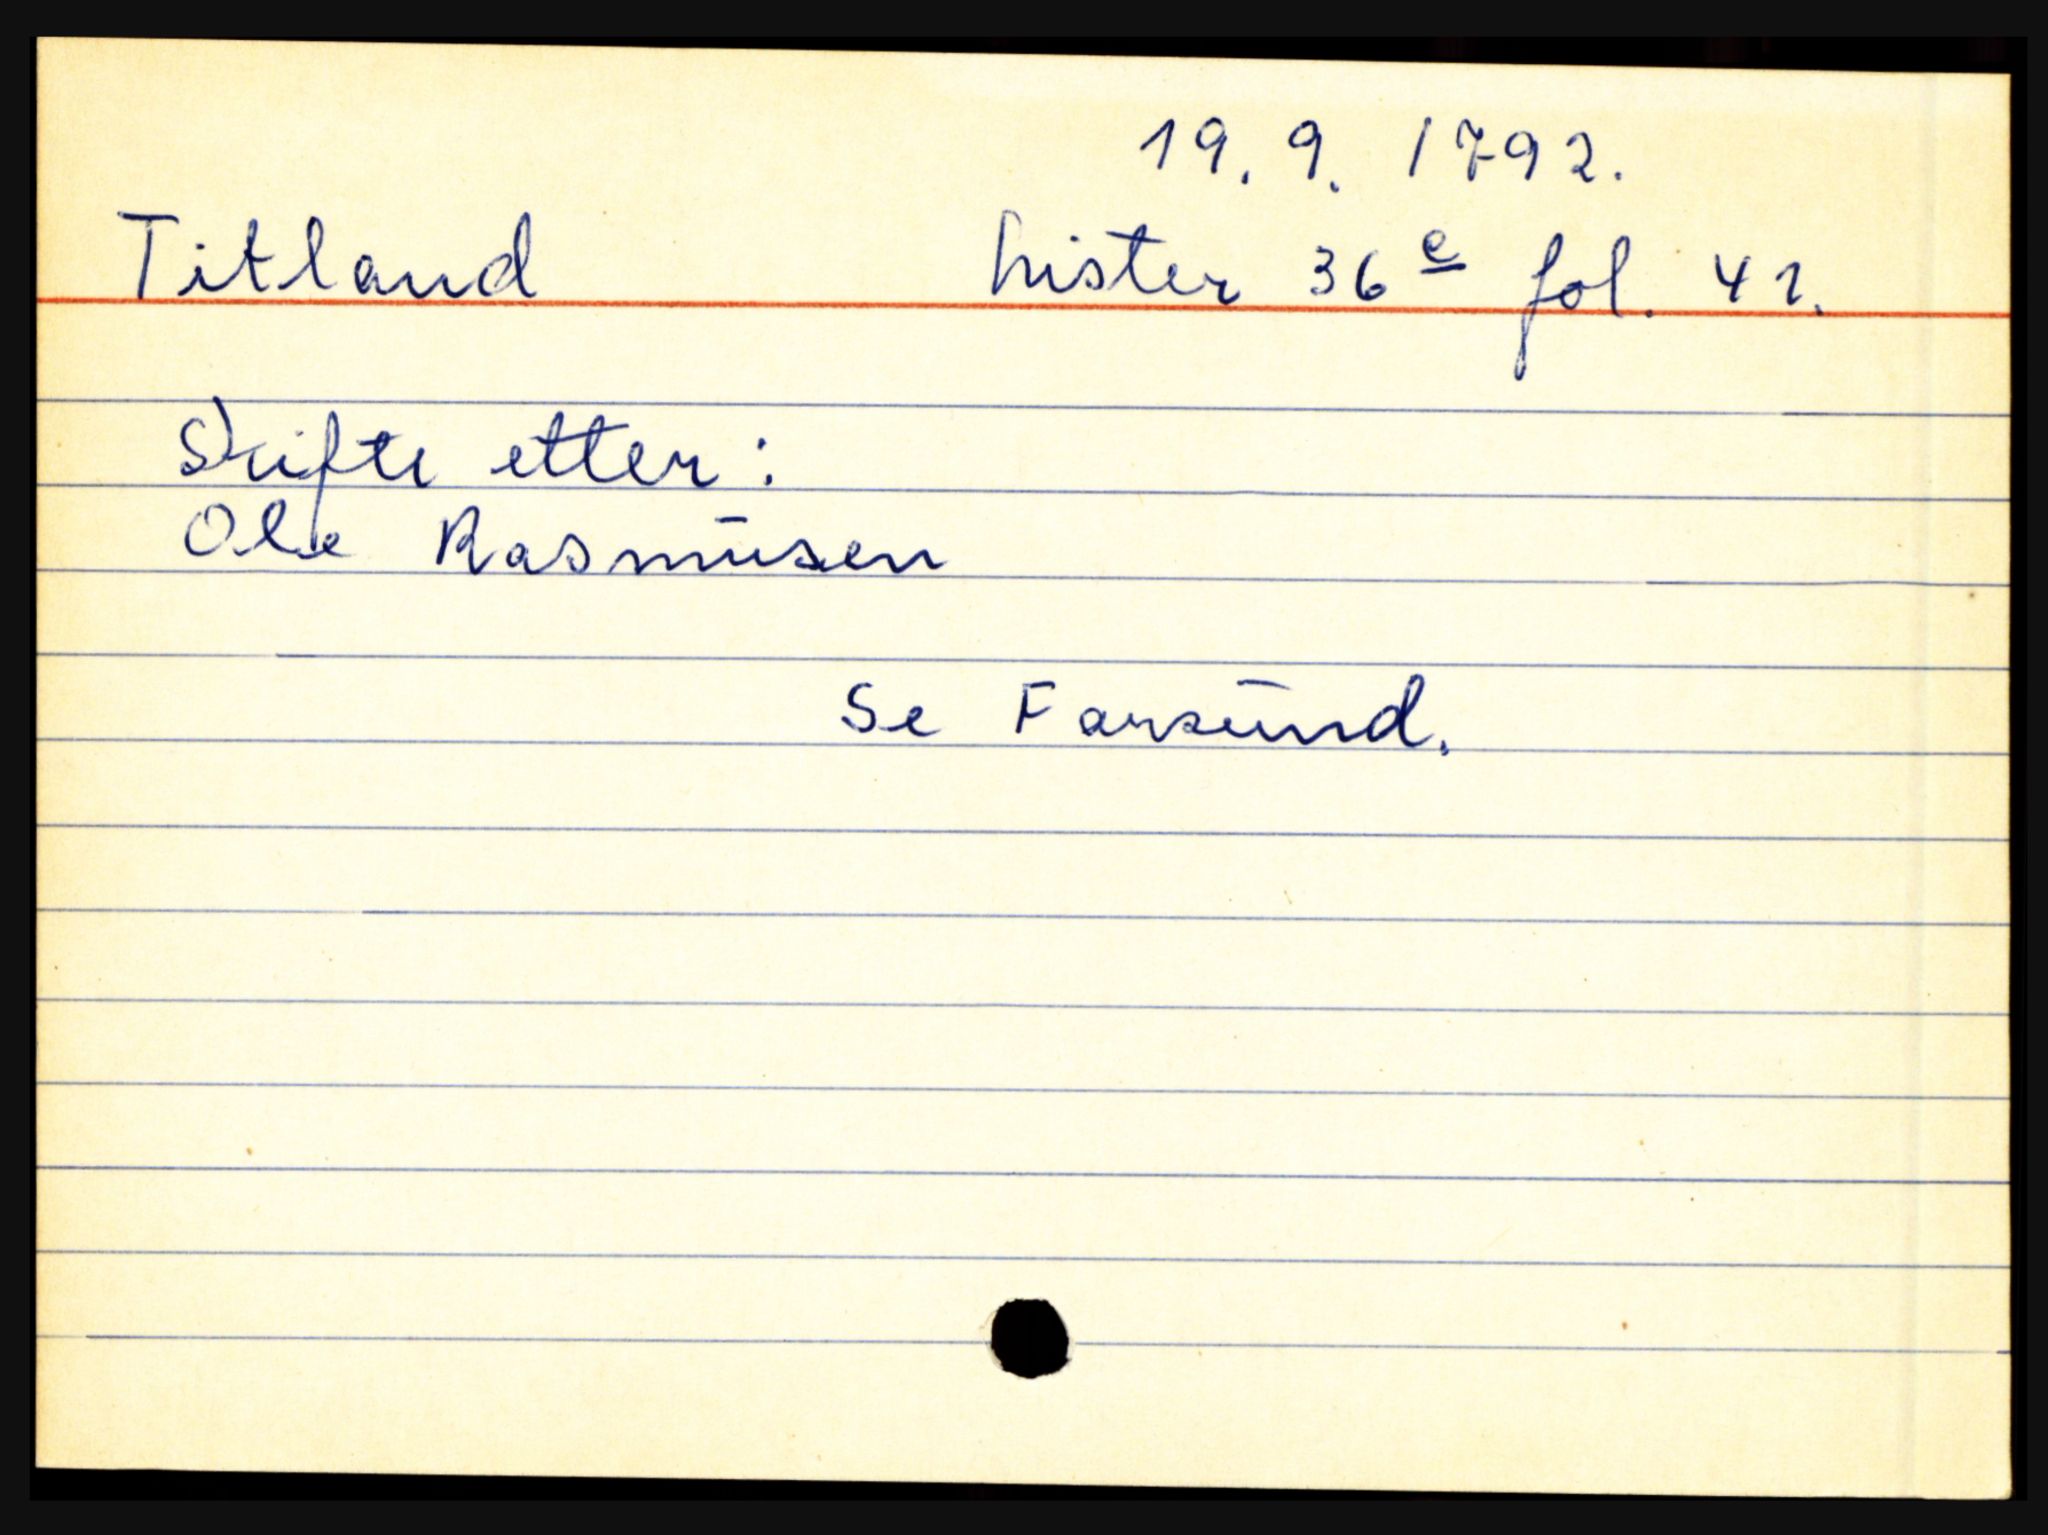 19. 9. 1792.
Titland Lister 36 e fol. 41.
Skifte etter:
Ole Rasmusen
Se Farsund.